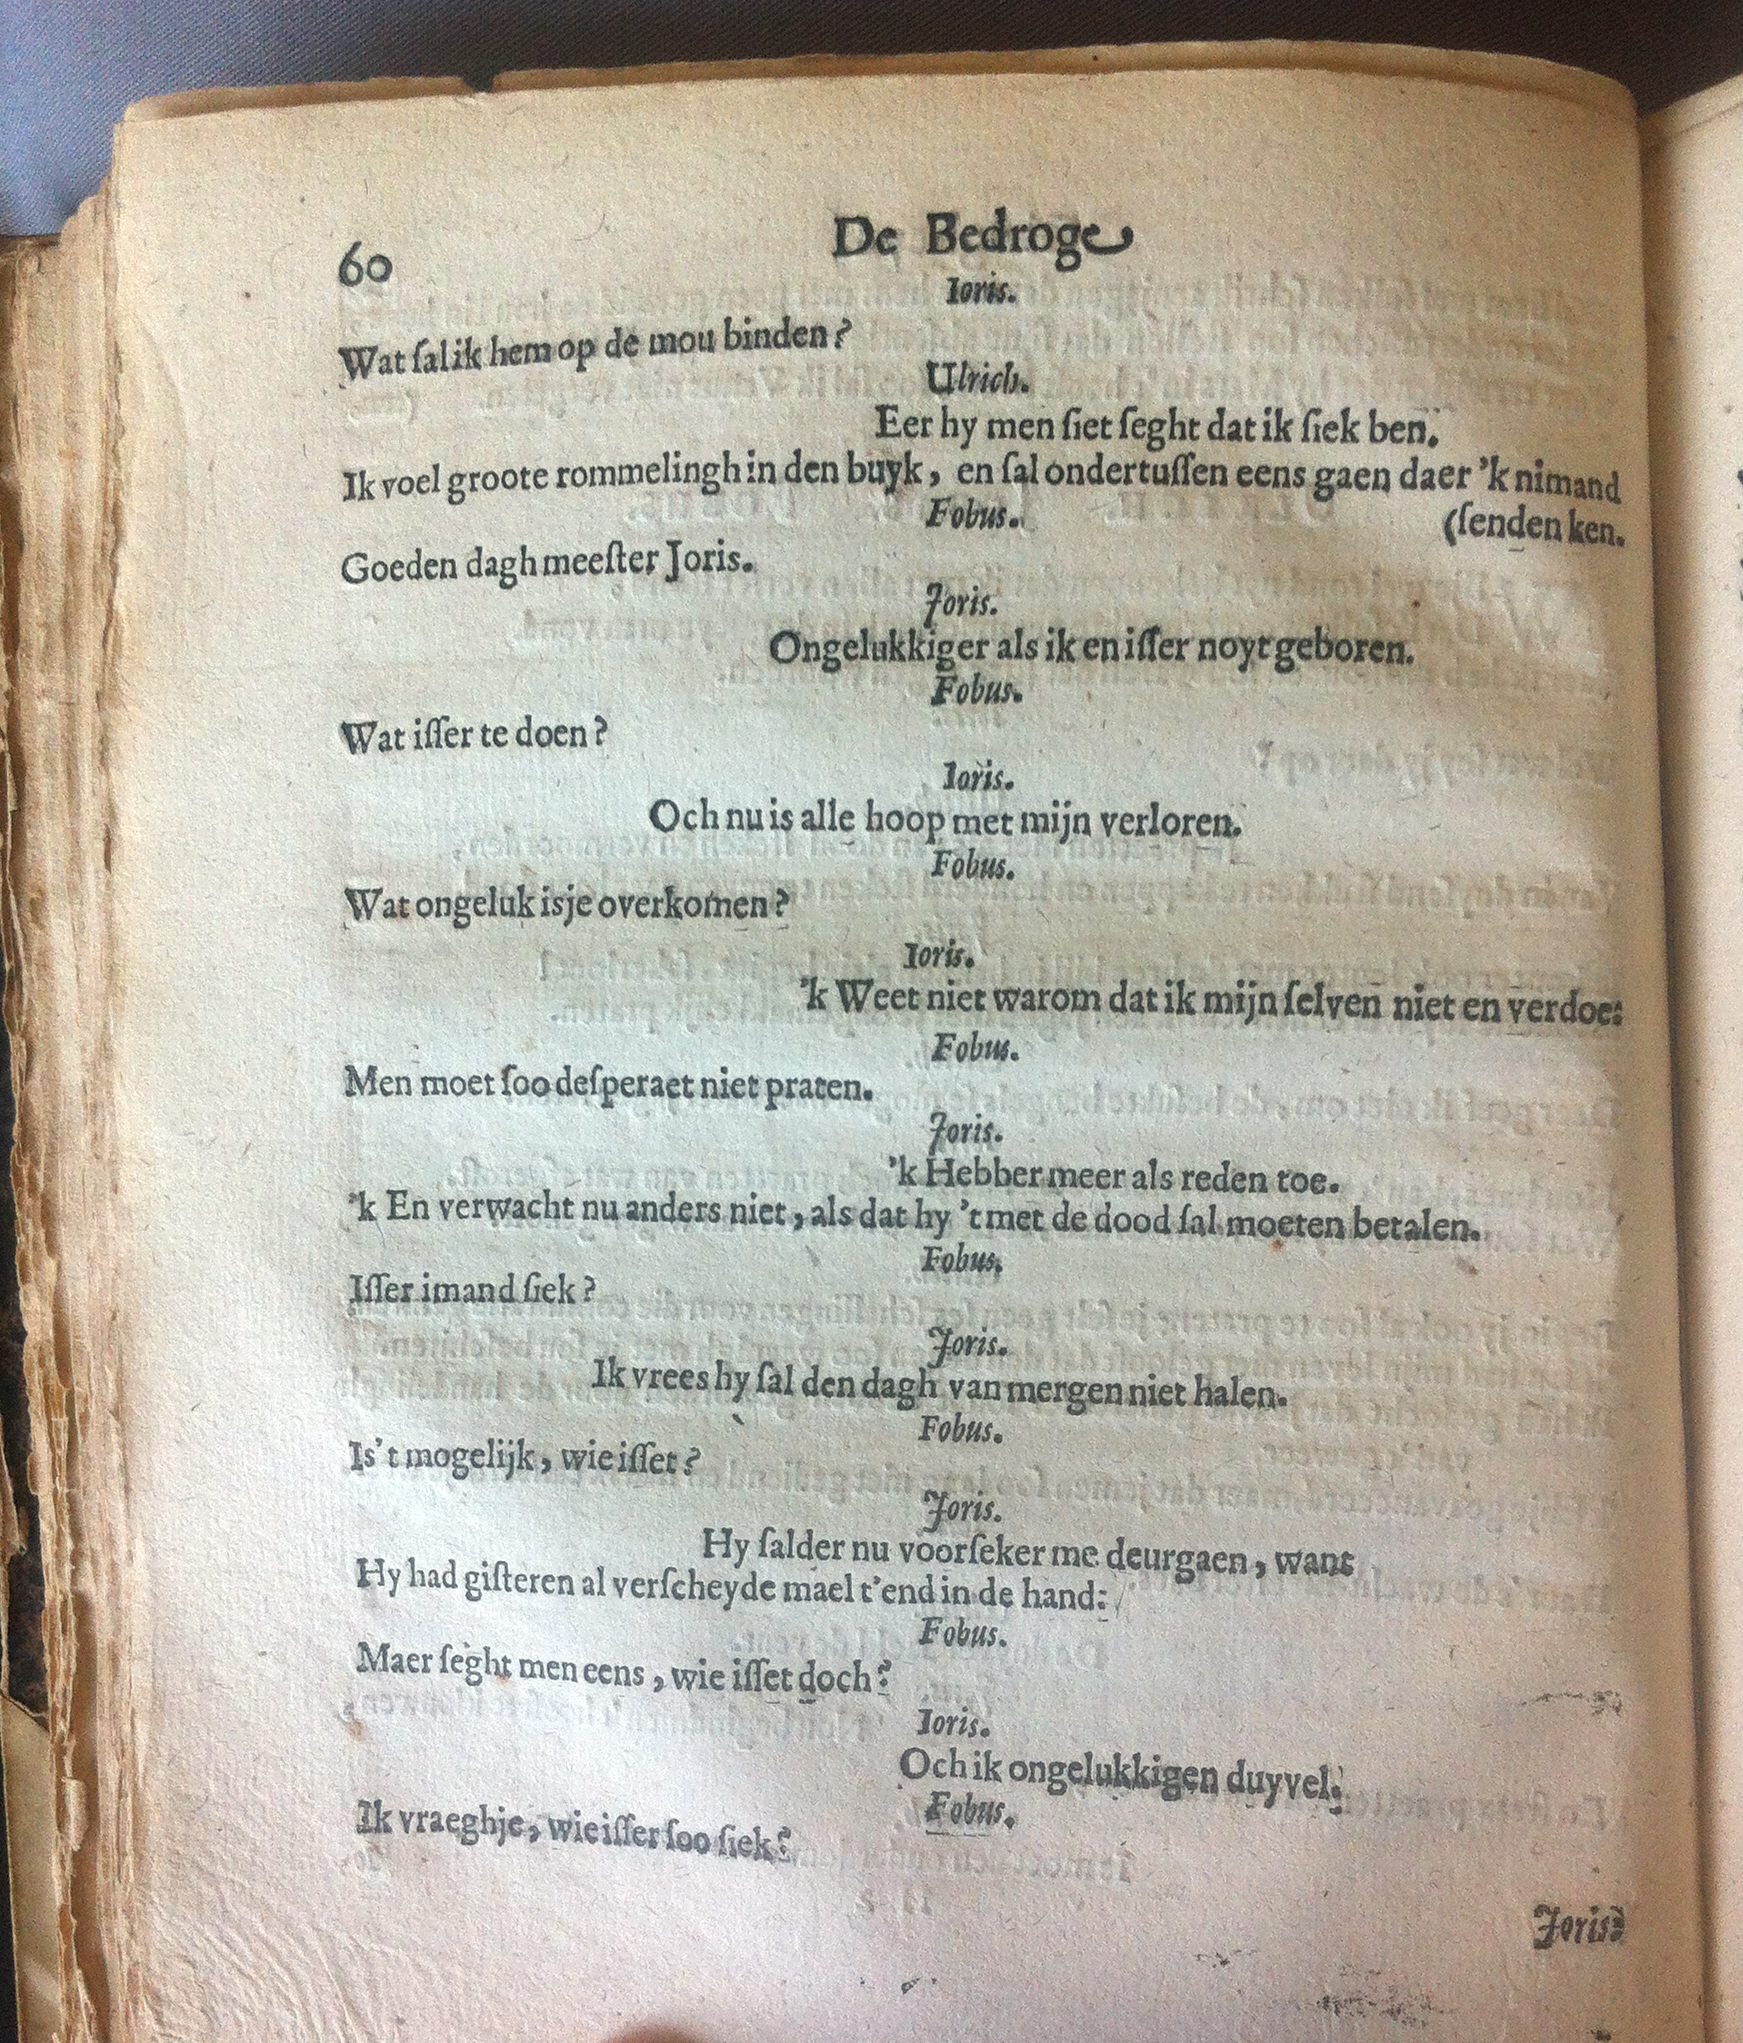 60
De Bedroge
Ioris.
Wat ſal ik hem op de mou binden?
Ulrich.
Eer hy men ſiet ſeght dat ik ſiek ben.
Ik voel groote rommelingh in den buyk, en ſal ondertuſſen eens gaen daer 'k nimand
(ſenden ken.
Fobus.
Goeden dagh meeſter Joris.
Joris.
Ongelukkiger als ik en iſſer noyt geboren.
Fobus.
Wat iſſer te doen?
Ioris.
Och nu is alle hoop met mijn verloren.
Fobus.
Wat ongeluk isje overkomen?
Ioris.
'k Weet niet warom dat ik mijn ſelven niet en verdoe:
Fobus.
Men moet ſoo deſperaet niet praten.
Joris.
'k Hebber meer als reden toe.
'k En verwacht nu anders niet, als dat hy 't met de dood ſal moeten betalen.
Fobus.
Iſſer imand ſiek?
Joris.
Ik vrees hy ſal den dagh van mergen niet halen.
Fobus.
Is't mogelijk, wie iſſet?
Joris.
Hy ſalder nu voorſeker me deurgaen, want
Hy had giſteren al verſcheyde mael t'end in de hand:
Fobus.
Maer ſeght men eens, wie iſſet doch?
Ioris.
Och ik ongelukkigen duyvel.
Fobus.
Ik vraeghje, wie iſſer ſoo ſiek?
Joris.